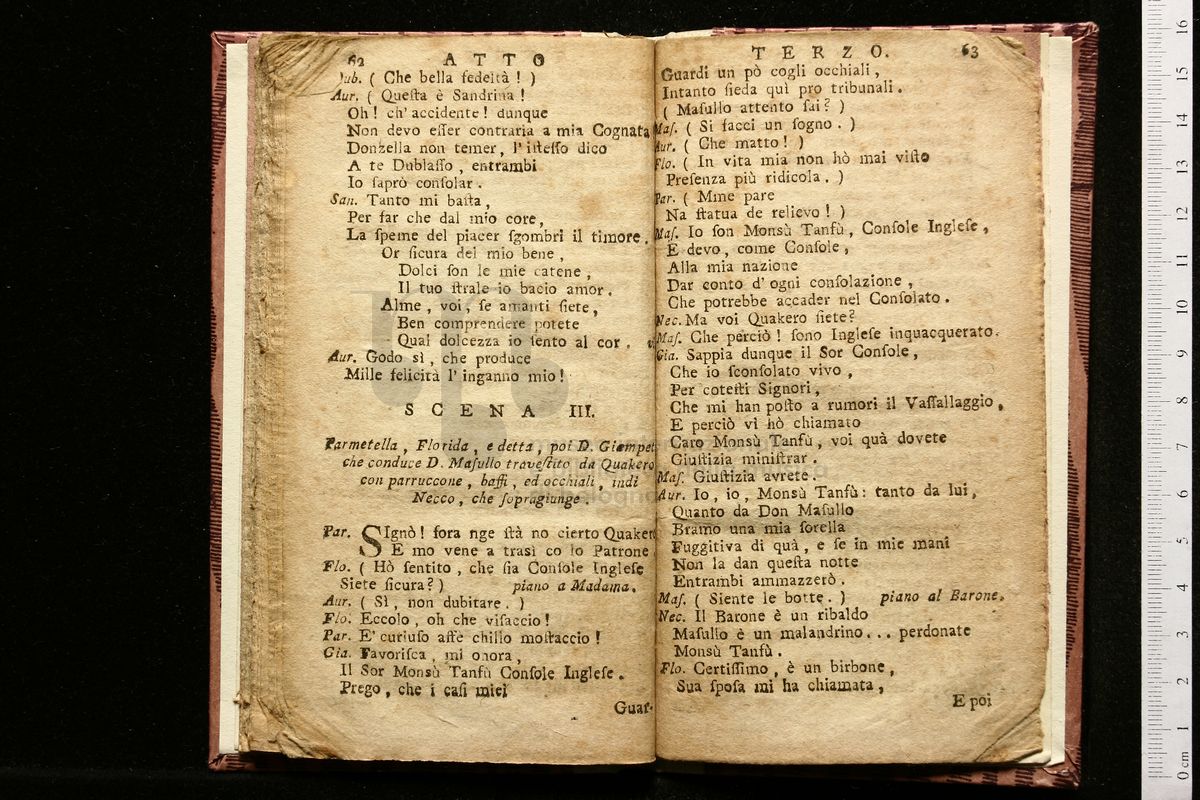 62 ATTO
Dub. ( Che bella fedeltà ! )
Aur. ( Queſta è Sandrina !
Oh ! ch' accidente ! dunque
Non devo eſſer contraria a mia Cognata
Donzella non temer, l' iſteſſo dico
A te Dublaſſo, entrambi
Io ſaprò conſolar.
San. Tanto mi baſta,
Per far che dal mio core,
La ſpeme del piacer ſgombri il timore.
Or ſicura del mio bene,
Dolci ſon le mie catene,
Il tuo ſtrale io bacio amor.
Alme, voi, ſe amanti ſiete,
Ben comprendere potete
Qual dolcezza io ſento al cor.
Aur. Godo sì, che produce
Mille felicità l' inganno mio!
SCENA III.
Parmetella, Florida, e detta, poi D. Giampet
che conduce D. Maſullo traveſtito da Quakero
con parruccone, baffi, ed occhiali, indi
Necco, che ſopragiunge.
Par. SIgnò! fora nge ſtà no cierto Quakero
E mo vene a trasì co lo Patrone
Flo. ( Hò ſentito, che ſia Conſole Ingleſe
Siete ſicura? ) piano a Madama.
Aur. ( Sì, non dubitare. )
Flo. Eccolo, oh che viſaccio!
Par. E' curiuſo affè chillo moſtaccio!
Gia. Favoriſca, mi onora,
Il Sor Monsù Tanfù Conſole Ingleſe.
Prego, che i caſi miei
Guar-
TERZO. 63
Guardi un pò cogli occhiali,
Intanto ſieda quì pro tribunali.
( Maſullo attento ſai? )
Maſ. ( Si facci un ſogno. )
Aur. ( Che matto! )
Flo. ( In vita mia non hò mai viſto
Preſenza più ridicola. )
Par. ( Mme pare
Na ſtatua de relievo! )
Maſ. Io ſon Monsù Tanfù, Conſole Ingleſe,
E devo, come Conſole,
Alla mia nazione
Dar conto d' ogni conſolazione,
Che potrebbe accader nel Conſolato.
Nec. Ma voi Quakero ſiete?
Maſ. Che perciò! ſono Ingleſe inquacquerato.
Gia. Sappia dunque il Sor Conſole,
Che io ſconſolato vivo,
Per coteſti Signori,
Che mi han poſto a rumori il Vaſſallaggio,
E perciò vi hò chiamato
Caro Monsù Tanfù, voi quà dovete
Giuſtizia miniſtrar.
Maſ. Giuſtizia avrete.
Aur. Io, io, Monsù Tanfù: tanto da lui,
Quanto da Don Maſullo
Bramo una mia ſorella
Fuggitiva di quà, e ſe in mie mani
Non la dan queſta notte
Entrambi ammazzerò.
Maſ. ( Siente le botte. ) piano al Barone.
Nec. Il Barone è un ribaldo
Maſullo è un malandrino... perdonate
Monsù Tanfù.
Flo. Certiſſimo, è un birbone,
Sua ſpoſa mi ha chiamata,
E poi
0 cm 1 2 3 4 5 6 7 8 9 10 11 12 13 14 15 16